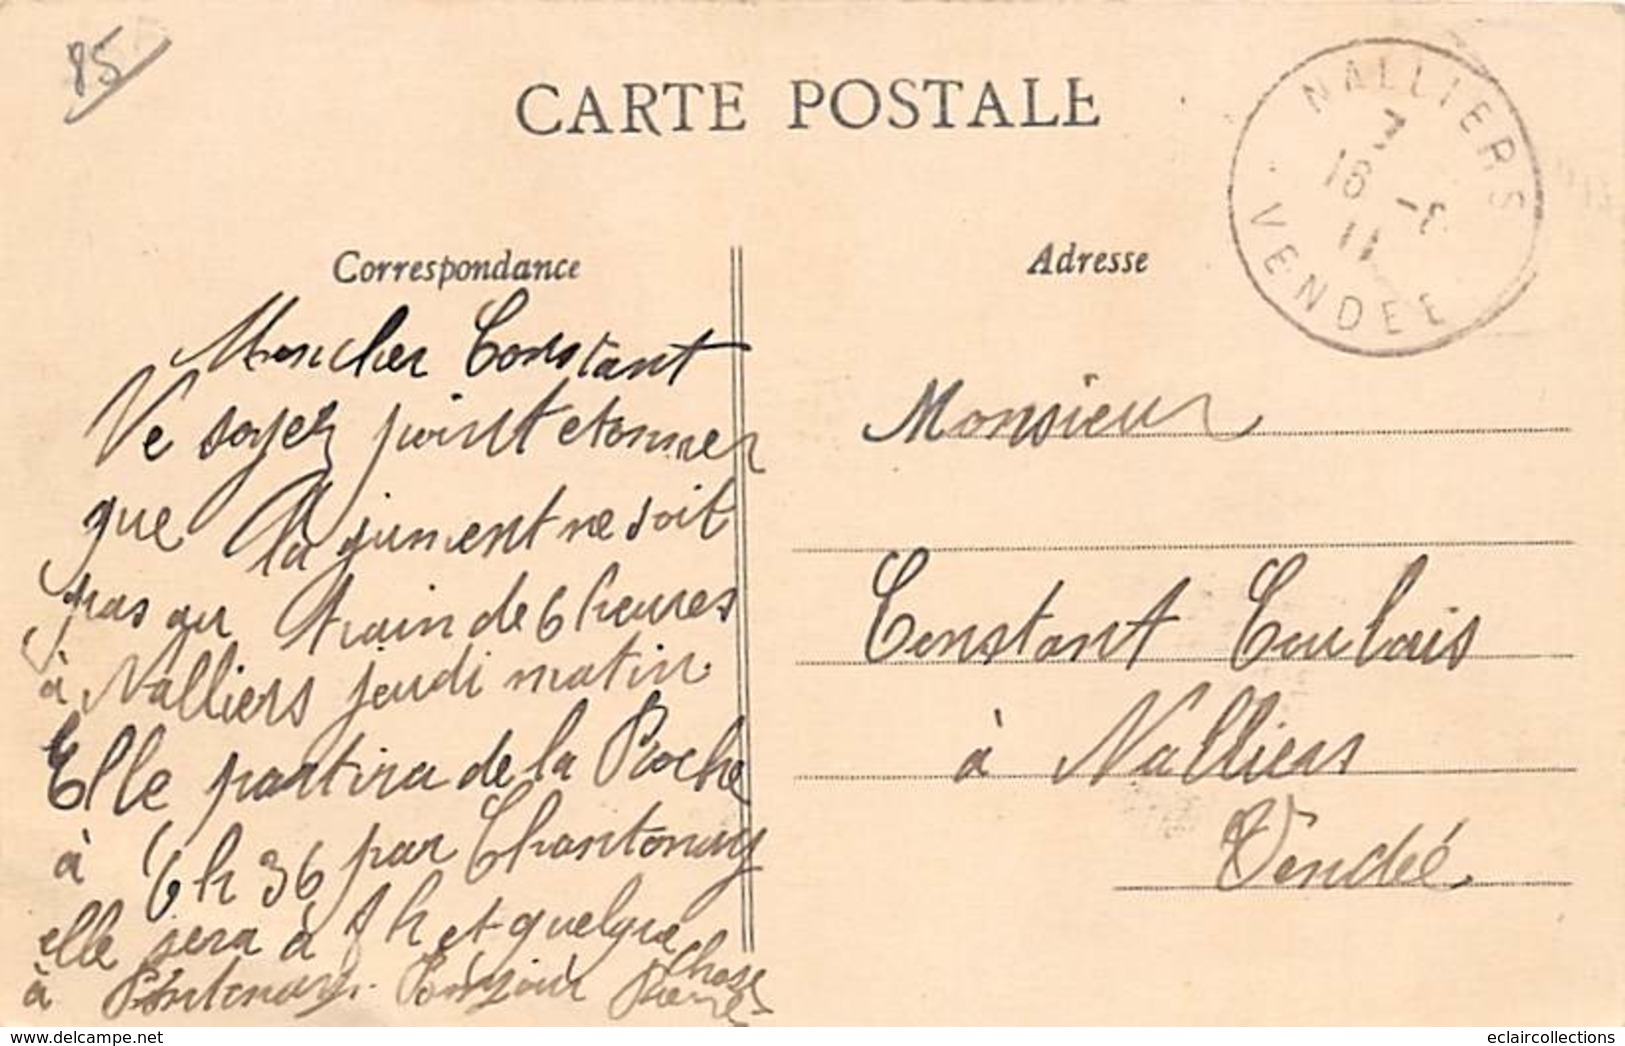 85
CARTE POSTALE
NALLIERS
18
11
VENDEE
Correspondance
Adresse
Mon cher Constant
Ne soyez point etonner
que la jument ne soit
pas au train de 6 heures
à Nalliers jeudi matin
Elle partira de la Roche
à 6 h 36 par Chantonnay
elle sera à 8 h et quelque chose
à Fontenay. Bonjour Pierre
Monsieur
Constant Coulais
à Nalliers
Vendée
delcampe.net
eclaircollections